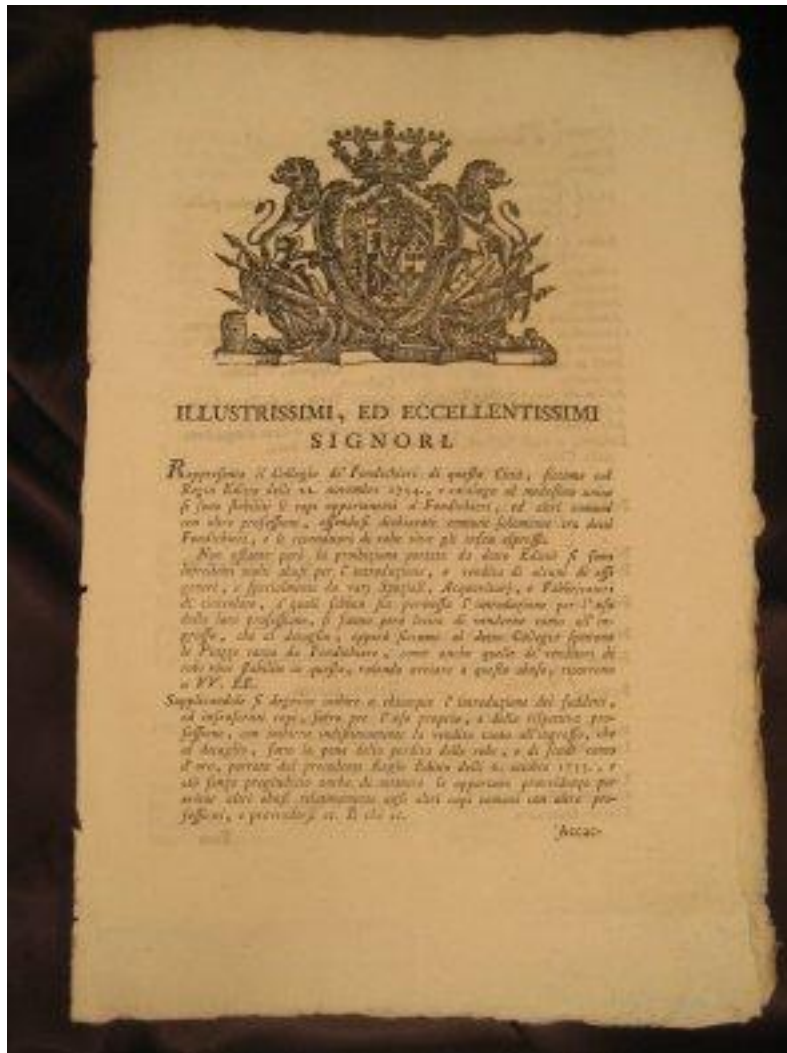 ILLUSTRISSIMI, ED ECCELLENTISSIMI
SIGNORI.
Rappresenta il Collegio de' Fondichieri di questa Città, siccome col
Regio Editto delli 22. novembre 1734., e catalogo al medesimo unito
si sono stabiliti li capi appartenenti a' Fondichieri, ed altri comuni
con altre professioni, essendosi dichiarate comuni solamente tra detti
Fondichieri, e li rivenditori di robe vive gli infra espressi.
Non ostante però la proibizione portata da detto Editto si sono
introdotti molti abusi per l'introduzione, e vendita di alcuni di essi
generi, e specialmente da varj Speziali, Acquavitaj, e Fabbricatori
di cioccolato, a' quali sebben sia permessa l'introduzione per l'uso
della loro professione, si fanno però lecito di venderne tanto all'in-
grosso, che al dettaglio, eppure siccome al detto Collegio
le Piazze da Fondichiere, come anche quelle de' venditori di
robe vive stabilite in questa, volendo ovviare a questo abuso, ricorrono
a VV. EE.
Supplicandole si degnino inibire a chiunque l'introduzione dei suddetti,
ed infrascritti capi, salvo per l'uso proprio, e della rispettiva pro-
fessione, con inibirne indistintamente la vendita tanto all'ingrosso, che
al dettaglio, sotto la pena della perdita delle robe, e di scudi cento
d'oro, portata dal precedente Regio Editto delli 6. ottobre 1733., e
ciò senza pregiudicio anche di le opportune provvidenze per
altri abusi relativamente agli altri capi comuni con altre pro-
fessioni, e provvedersi ec. Il che ec.